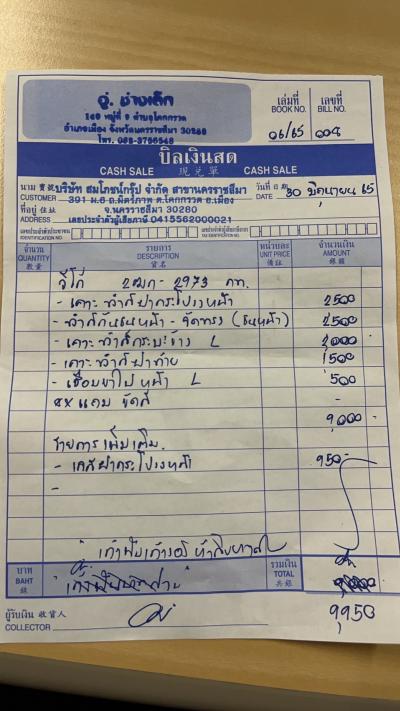 อู่ ช่างเล็ก
เล่มที่
BOOK NO. 06/65
เลขที่
BILL NO. 008
149 หมู่ที่ 9 ตำบลโคกกรวด
อำเภอเมือง จังหวัดนครราชสีมา 30280
โทร. 083-3756548
บิลเงินสด
CASH SALE 現兌單 CASH SALE
นาม 寶號 บริษัท สมโภชน์กรุ๊ป จำกัด สาขานครราชสีมา
CUSTOMER 391 ม.6 ถ.มิตรภาพ ต.โคกกรวด อ.เมือง
วันที่ 日期
DATE 30 มิถุนายน 65
ที่อยู่ 住址 จ.นครราชสีมา 30280
ADDRESS เลขประจำตัวผู้เสียภาษี 0415562000021
เลขประจำตัวประชาชน
IDENTIFICATION NO.
เลขประจำตัวผู้เสียภาษี
TAX IDENTIFICATION NO.
จำนวน
QUANTITY
數量
รายการ
DESCRIPTION
貨名
หน่วยละ
UNIT PRICE
備註
จำนวนเงิน
AMOUNT
銀額
วีโก้ 2ฒก-2973 กท.
- เคาะทำสีฝากระโปรงหน้า 2500
- ทำสีกันชนหน้า - จัดทรง (ชนหน้า) 2500
- เคาะทำสีกระบะข้าง L 2000
- เคาะทำสีฝาท้าย 1500
- เชื่อมขาไฟหน้า L 500
แถม ขัดสี -
9000 -
รายการเพิ่มเติม.
- เคสฝากระโปรงหน้า 950-
-
เก้าพันเก้าร้อยห้าสิบบาท
บาท
BAHT
銖
รวมเงิน
TOTAL
共銀
ผู้รับเงิน 收貨人
COLLECTOR
9950